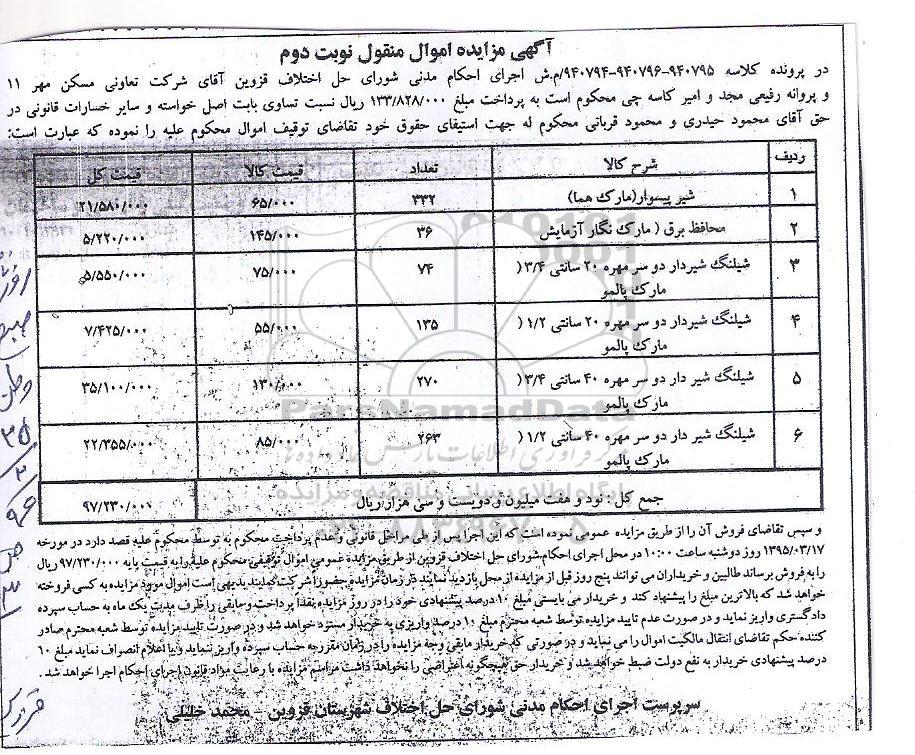 آگهی مزایده اموال منقول نوبت دوم
در پرونده کلاسه ۹۴۰۷۹۵-۹۴۰۷۹۶-۹۴۰۷۹۴/م.ش اجرای احکام مدنی شورای حل اختلاف قزوین آقای شرکت تعاونی مسکن مهر ۱۱
و پروانه رفیعی مجد و امیر کاسه چی محکوم است به پرداخت مبلغ ۱۳۳/۸۲۸/۰۰۰ ریال نسبت تساوی بابت اصل خواسته و سایر خسارات قانونی در
حق آقای محمود حیدری و محمود قربانی محکوم له جهت استیفای حقوق خود تقاضای توقیف اموال محکوم علیه را نموده که عبارت است:
ردیف شرح کالا تعداد قیمت کالا قیمت کل
۱ شیر پیسوار(مارک هما) ۳۳۲ ۶۵/۰۰۰ ۲۱/۵۸۰/۰۰۰
۲ محافظ برق ( مارک نگار آزمایش ۳۶ ۱۴۵/۰۰۰ ۵/۲۲۰/۰۰۰
۳ شیلنگ شیردار دو سر مهره ۲۰ سانتی ۳/۴ ( ۷۴ ۷۵/۰۰۰ ۵/۵۵۰/۰۰۰
مارک پالمو
۴ شیلنگ شیردار دو سر مهره ۲۰ سانتی ۱/۲ ( ۱۳۵ ۵۵/۰۰۰ ۷/۴۲۵/۰۰۰
مارک پالمو
۵ شیلنگ شیر دار دو سر مهره ۴۰ سانتی ۳/۴ ( ۲۷۰ ۱۳۰/۰۰۰ ۳۵/۱۰۰/۰۰۰
مارک پالمو
۶ شیلنگ شیر دار دو سر مهره ۴۰ سانتی ۱/۲ ( ۲۶۳ ۸۵/۰۰۰ ۲۲/۳۵۵/۰۰۰
مارک پالمو
ParsNamadData
جمع کل : نود و هفت میلیون و دویست و سی هزار ریال ۹۷/۲۳۰/۰۰۰
و سپس تقاضای فروش آن را از طریق مزایده عمومی نموده است که این اجرا پس از طی مراحل قانونی و عدم پرداخت محکوم به توسط محکوم علیه قصد دارد در مورخه
۱۳۹۵/۰۳/۱۷ روز دوشنبه ساعت ۱۰:۰۰ در محل اجرای احکام شورای حل اختلاف قزوین از طریق مزایده عمومی اموال توقیفی محکوم علیه را به قیمت پایه ۹۷/۲۳۰/۰۰۰ ریال
را به فروش برساند طالبین و خریداران می توانند پنج روز قبل از مزایده از محل بازدید نمایند در زمان مزایده حضور/شرکت نمایند بدیهی است اموال مورد مزایده به کسی فروخته
خواهد شد که بالاترین مبلغ را پیشنهاد کند و خریدار می بایستی مبلغ ۱۰درصد پیشنهادی خود را در روز مزایده نقداً پرداخت و مابقی را ظرف مدت یک ماه به حساب سپرده
دادگستری واریز نماید و در صورت عدم تایید مزایده توسط شعبه محترم مبلغ ۱۰درصد واریزی به خریدار مسترد خواهد شد و در صورت تایید مزایده توسط شعبه محترم صادر
کننده حکم تقاضای انتقال مالکیت اموال را می نماید و در صورتی که خریدار مابقی وجه مزایده را در زمان مقرر به حساب سپرده واریز ننماید و یا اعلام انصراف نماید مبلغ ۱۰
درصد پیشنهادی خریدار به نفع دولت ضبط خواهد شد و خریدار حق هیچگونه اعتراضی را نخواهد داشت مراسم مزایده با رعایت مواد قانون اجرای احکام اجرا خواهد شد .
سرپرست اجرای احکام مدنی شورای حل اختلاف شهرستان قزوین - محمد خلیلی